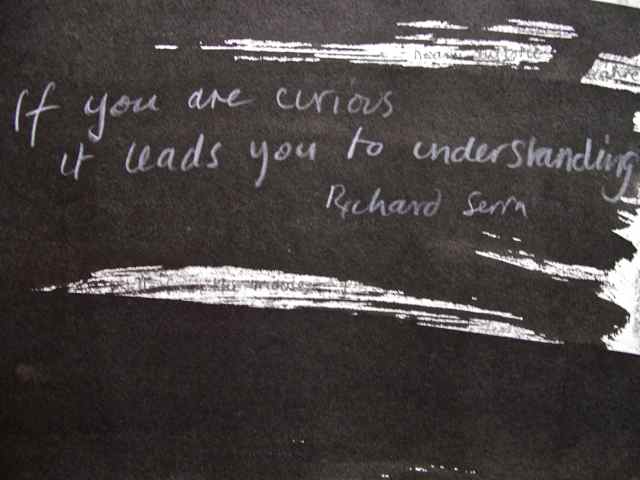 If you are curious
it leads you to understanding
Richard Serra